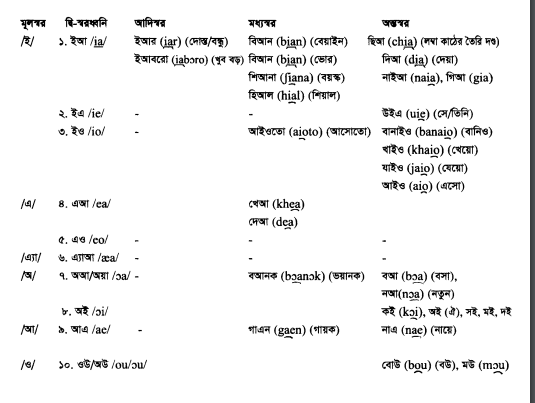 মূলস্বর দ্বি-স্বরধ্বনি আদিস্বর মধ্যস্বর অন্তস্বর
/ই/ ১. ইআ /ia/ ইআর (iar) (দোস্ত/বন্ধু) বিআন (bian) (বেয়াইন) ছিআ (chia) (লম্বা কাঠের তৈরি দণ্ড)
ইআবরো (iabɔro) (খুব বড়) বিআন (bian) (ভোর) দিআ (dia) (দেয়া)
শিআনা (ʃiana) (বয়স্ক) নাইআ (naia), গিআ (gia)
হিআল (hial) (শিয়াল)
২. ইএ /ie/ - - উইএ (uie) (সে/তিনি)
৩. ইও /io/ - আইওতো (aioto) (আসোতো) বানাইও (banaio) (বানিও)
খাইও (khaio) (খেয়ো)
যাইও (jaio) (যেয়ো)
আইও (aio) (এসো)
/এ/ ৪. এআ /ea/ খেআ (khea)
দেআ (dea)
৫. এও /eo/ - - -
/এ্যা/ ৬. এ্যাআ /æa/ - - -
/অ/ ৭. অআ/অয়া /ɔa/ - বআনক (bɔanɔk) (ভয়ানক) বআ (bɔa) (বসা),
নআ(nɔa) (নতুন)
৮. অই /ɔi/ কই (kɔi), অই (ঐ), সই, মই, দই
/আ/ ৯. আএ /ae/ - গাএন (gaen) (গায়ক) নাএ (nae) (নায়ে)
/ও/ ১০. ওউ/অউ /ou/ɔu/ বোউ (bou) (বউ), মউ (mɔu)